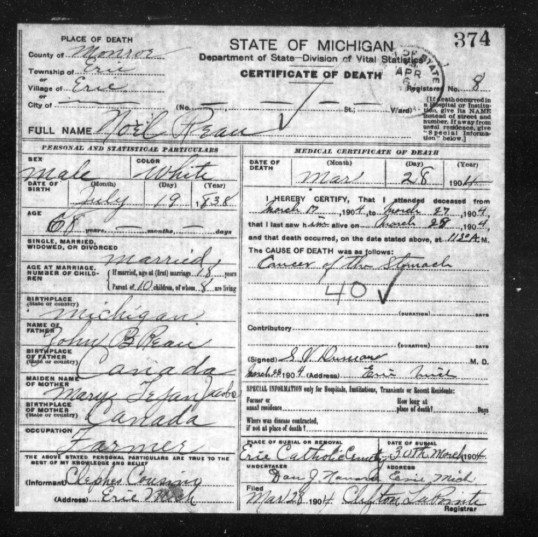 374
PLACE OF DEATH
County of Monroe
Township of Erie
or
Village of Erie
or
City of
STATE OF MICHIGAN
Department of State—Division of Vital Statistics
CERTIFICATE OF DEATH
STATE
APR
6
Registered No. 8
(No. St.; Ward)
[If death occurred in a Hospital or Institution, give its NAME instead of street and number. If away from usual residence, give "special information" below.]
FULL NAME Noel Reau
PERSONAL AND STATISTICAL PARTICULARS
SEX
male
COLOR
White
DATE OF BIRTH
(Month) (Day) (Year)
July 19, 1838
AGE
68 years, — months, — days
SINGLE, MARRIED, WIDOWED, OR DIVORCED
married
AGE AT MARRIAGE, NUMBER OF CHILDREN
If married, age at (first) marriage 18 years
Parent of 10 children, of whom 8 are living
BIRTHPLACE
(State or country)
Michigan
NAME OF FATHER
John B Reau
BIRTHPLACE OF FATHER
(State or country)
Canada
MAIDEN NAME OF MOTHER
Mary
BIRTHPLACE OF MOTHER
(State or country)
Canada
OCCUPATION
Farmer
THE ABOVE STATED PERSONAL PARTICULARS ARE TRUE TO THE BEST OF MY KNOWLEDGE AND BELIEF
(Informant) Cousino
(Address) Erie Mich
MEDICAL CERTIFICATE OF DEATH
DATE OF DEATH
(Month) (Day) (Year)
Mar 28 1904
I HEREBY CERTIFY, That I attended deceased from
March 17, 1904, to March 27, 1904,
that I last saw him alive on March 28, 1904,
and that death occurred, on the date stated above, at M.
The CAUSE OF DEATH was as follows:
Cancer of the Stomach
40
(DURATION) DAYS
Contributory
(DURATION) DAYS
(Signed) M. D.
March 28 1904 (Address) Erie Mich
SPECIAL INFORMATION only for Hospitals, Institutions, Transients or Recent Residents:
Former or usual residence
How long at place of death? Days
Where was disease contracted, if not at place of death?
PLACE OF BURIAL OR REMOVAL
Erie Catholic Cemetery
DATE OF BURIAL
30th March 1904
UNDERTAKER
Dan J.
ADDRESS
Erie, Mich
Filed
Mar 28 1904 Clifton LaPointe
Registrar